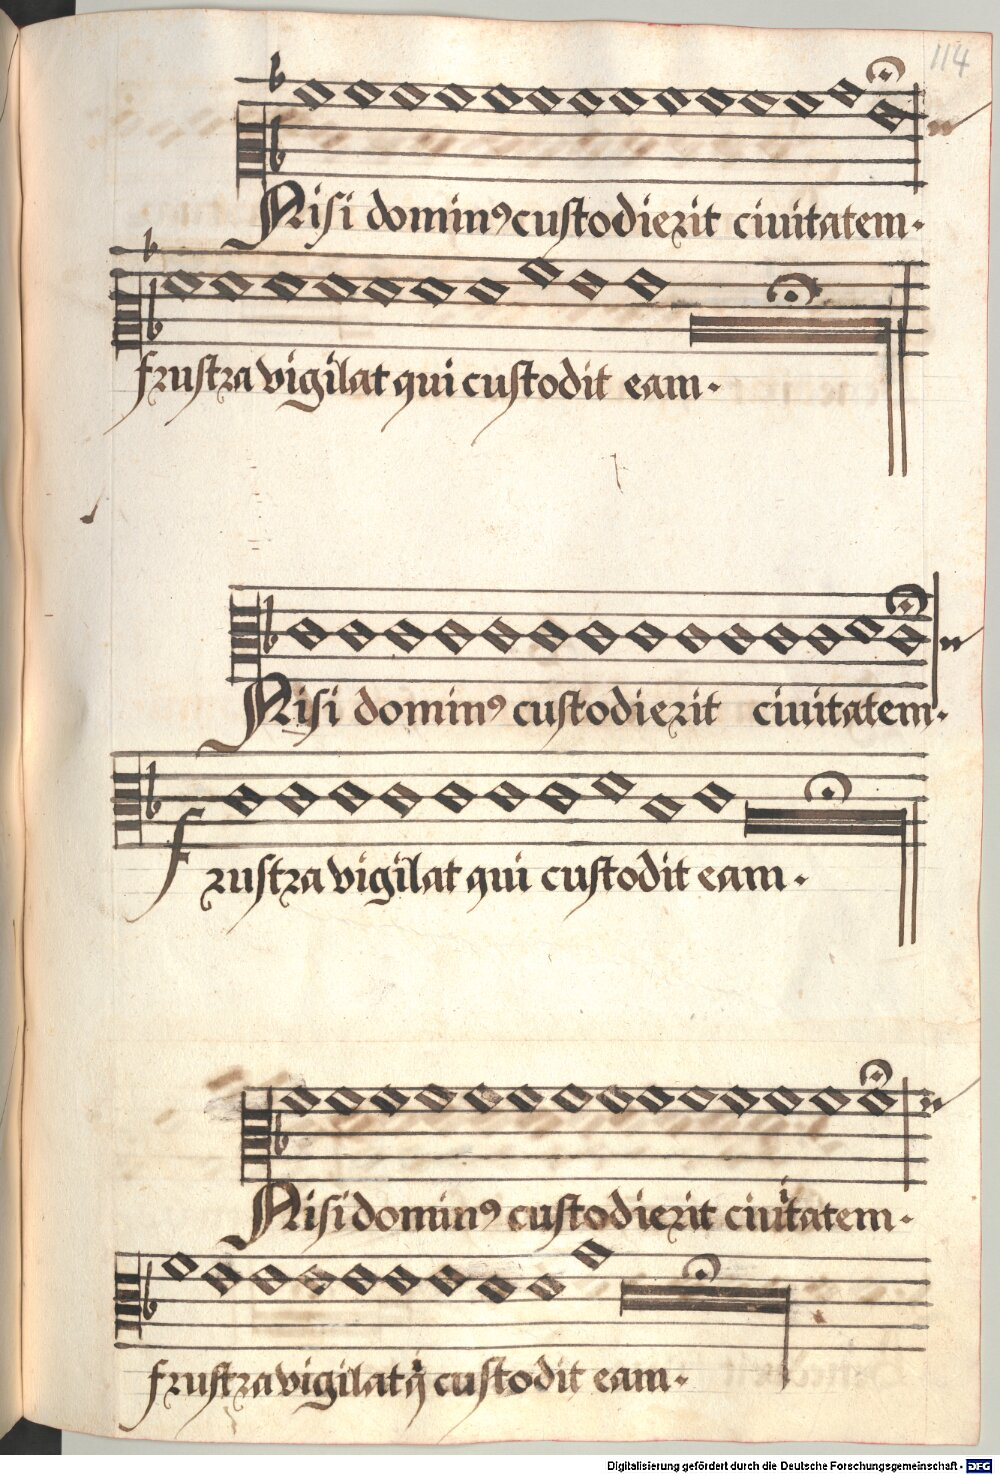 114
Nisi dominꝰ custodierit ciuitatem.
frustra vigilat qui custodit eam.
Nisi dominꝰ custodierit ciuitatem.
frustra vigilat qui custodit eam.
Nisi dominꝰ custodierit ciuitatem.
frustra vigilat q̈ custodit eam.
Digitalisierung gefördert durch die Deutsche Forschungsgemeinschaft - DFG